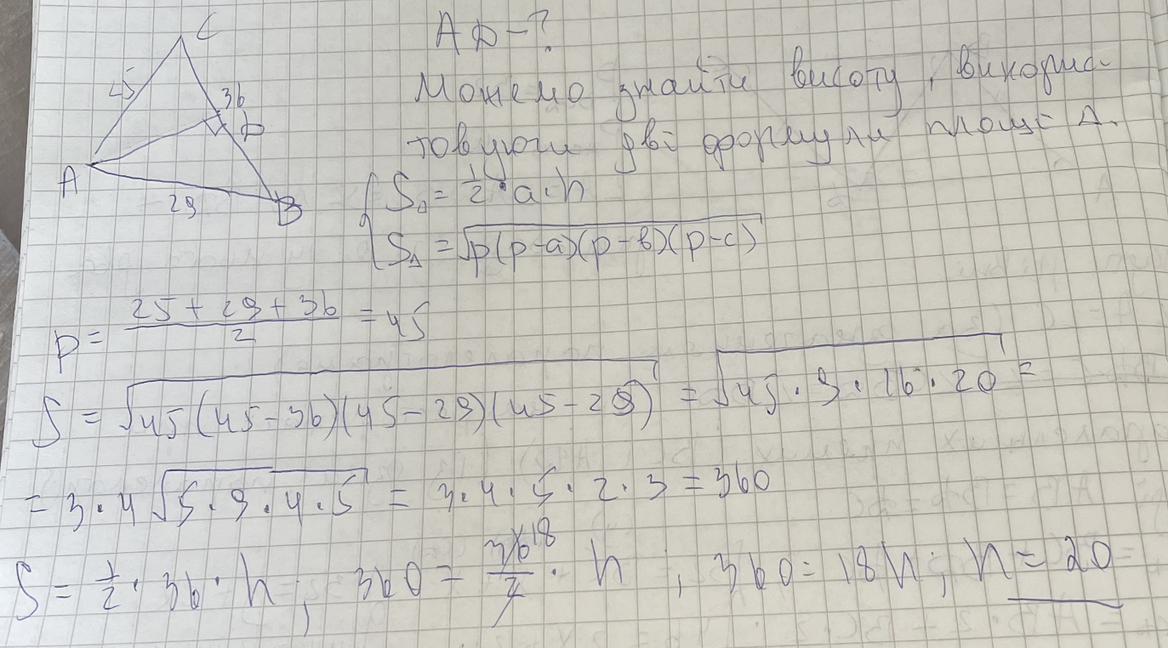 C
AD-?
25
36
D
A
29
B
Можемо знайти висоту, викорис-
товуючи дві формули площі Δ.
S_Δ = 1/2 · a · h
S_Δ = √(p(p-a)(p-b)(p-c))
p = (25 + 29 + 36)/2 = 45
S = √(45(45-36)(45-29)(45-25)) = √(45 · 9 · 16 · 20) =
= 3 · 4 √(5 · 9 · 4 · 5) = 3 · 4 · 5 · 2 · 3 = 360
S = 1/2 · 36 · h ; 360 = 36 18/2 · h ; 360 = 18h ; h = 20